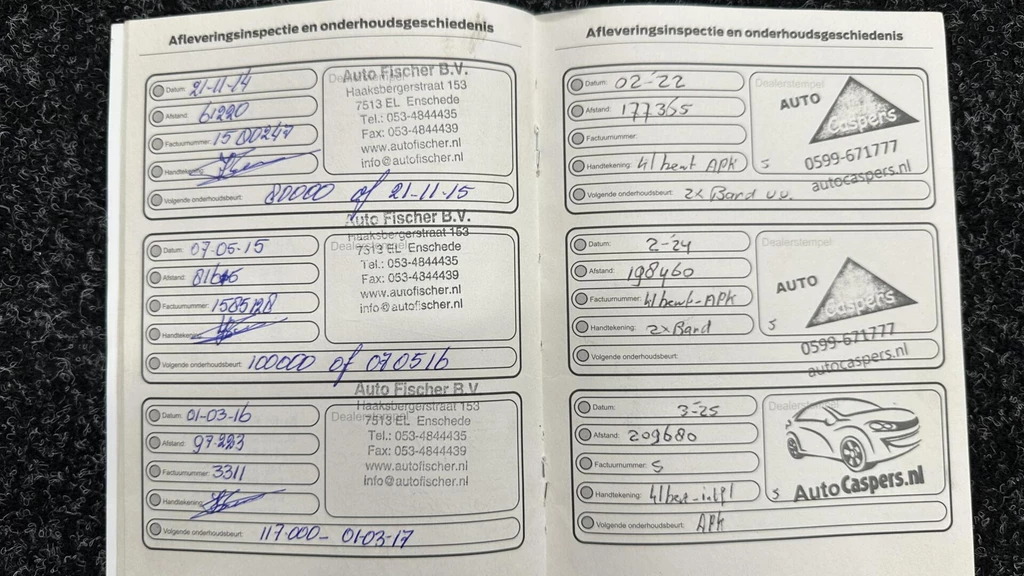 Afleveringsinspectie en onderhoudsgeschiedenis
Datum: 21-11-14
Afstand: 61220
Factuurnummer: 1500247
Handtekening:
Volgende onderhoudsbeurt: 80000 of 21-11-15
Auto Fischer B.V.
Haaksbergerstraat 153
7513 EL Enschede
Tel.: 053-4844435
Fax: 053-4844439
www.autofischer.nl
info@autofischer.nl
Datum: 07-05-15
Afstand:
Factuurnummer: 1585128
Handtekening:
Volgende onderhoudsbeurt: 100000 of 070516
Auto Fischer B.V.
Haaksbergerstraat 153
7513 EL Enschede
Tel.: 053-4844435
Fax: 053-4844439
www.autofischer.nl
info@autofischer.nl
Datum: 01-03-16
Afstand:
Factuurnummer: 3311
Handtekening:
Volgende onderhoudsbeurt: 117.000- 01-03-17
Auto Fischer B.V.
Haaksbergerstraat 153
7513 EL Enschede
Tel.: 053-4844435
Fax: 053-4844439
www.autofischer.nl
info@autofischer.nl
Afleveringsinspectie en onderhoudsgeschiedenis
Datum: 02-22
Afstand: 177365
Factuurnummer:
Handtekening: APK
Volgende onderhoudsbeurt: 2x Band v.v.
Dealerstempel:
AUTO
Caspers
0599-671777
autocaspers.nl
Datum: 2-24
Afstand: 198460
Factuurnummer: APK
Handtekening: 2x Band
Volgende onderhoudsbeurt:
Dealerstempel:
AUTO
Caspers
0599-671777
autocaspers.nl
Datum: 3-25
Afstand: 209680
Factuurnummer: S
Handtekening:
Volgende onderhoudsbeurt: APK
AutoCaspers.nl